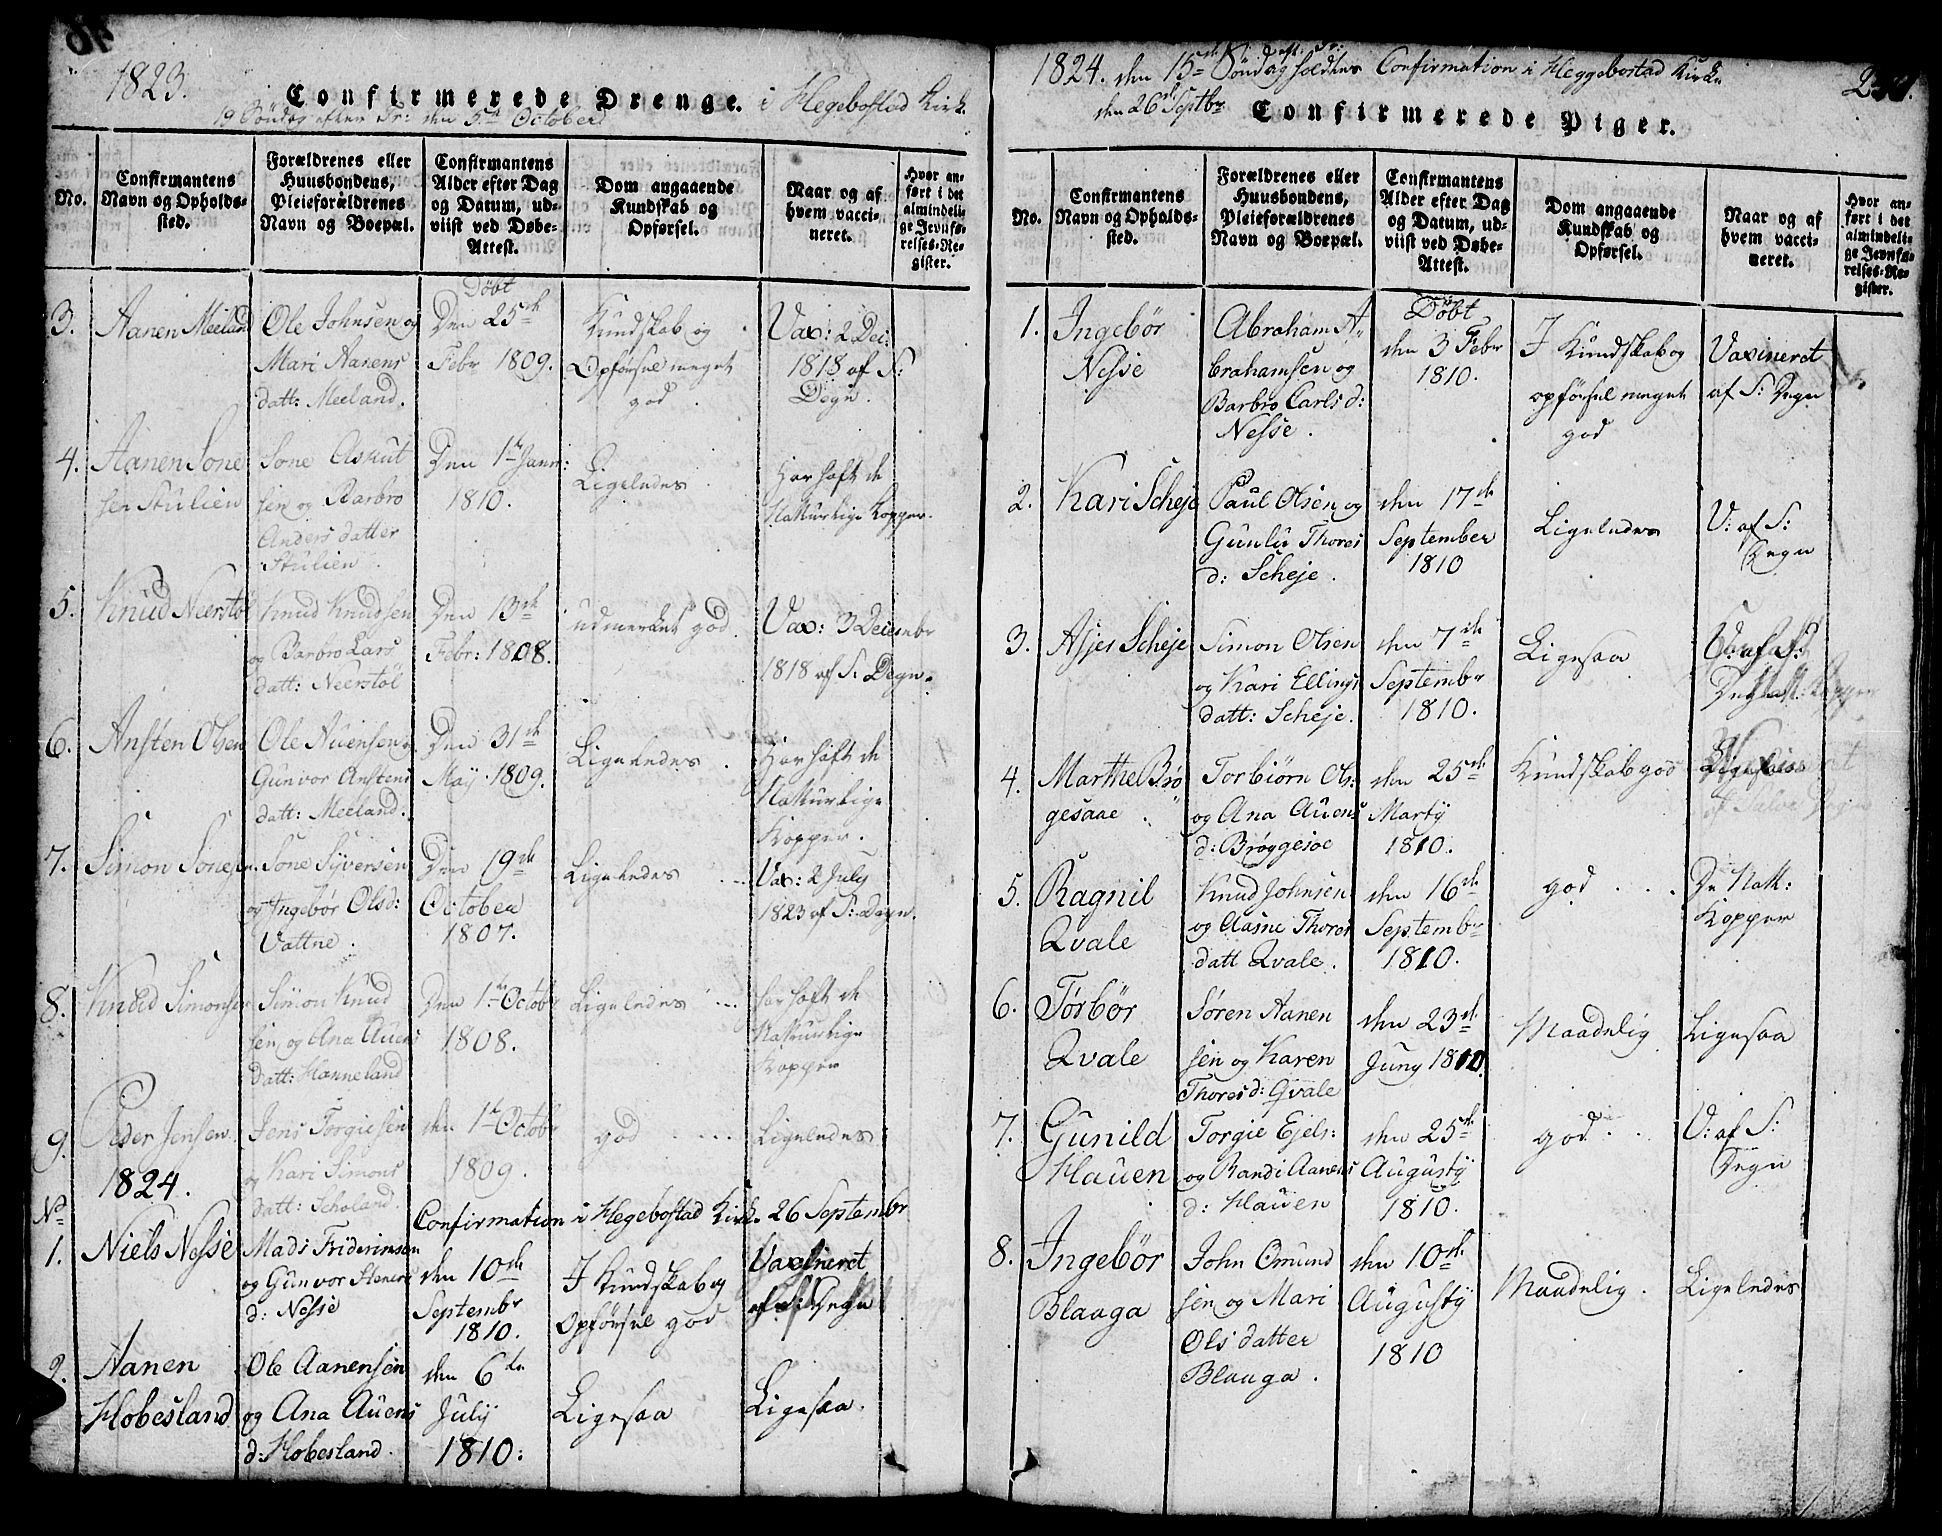 1823.
Confirmerede Drenge. i Hegebostad Kirk.
19 Söndag efter Tr: den 5te October
No.
Confirmantens
Navn og Opholds-
sted.
Forældrenes eller
Huusbondens,
Pleieforældrenes
Navn og Boepæl.
Confirmantens
Alder efter Dag
og Datum, ud-
viist ved Døbe-
Attest.
Dom angaaende
Kundskab og
Opførsel.
Naar og af
hvem vacci-
neret.
Hvor an-
ført i det
almindeli-
ge Jevnfø-
relses-Re-
gister.
3.
Aanen Meeland
Ole Johnsen og
Mari Aanens
datt: Meeland.
Döbt
Den 25de
Febr 1809.
Kundskab og
Opførsel meget
god.
Vax: 2 Dec:
1818 af S:
Degn.
4.
Aanen Sone
sen Stulien
Sone Asnut
sen og Barbro
Anders datter
Stulien.
Den 1te Janr:
1810.
Ligeledes
Har haft de
Natturlige Kopper.
5.
Knud Neerstöl
Knud Knudsen
og Barbro Lars
datt: Neerstöl
Den 13de
Febr: 1808.
udmerket god.
Vax: 3 Decembr
1818 af S. Degn.
6.
Ansten Olsen
Ole Auensen og
Gunvor Anstens
datt: Meeland.
Den 31de
May 1809.
Ligeledes.
Har haft de
Natturlige
Kopper.
7.
Simon Sonesen.
Sone Syversen
og Ingebör Olsd:
Vattne.
Den 19de
October
1807.
Ligeledes
Vax: 2 July
1823 af S: Degn.
8.
Knud Simonsen
Simon Knud
sen og Ana Auens
datt: Hanneland
Den 1te Octobr
1808.
Ligeledes
har haft de
Natturlige
Kopper
9.
Peder Jensen.
Jens Torgiesen
og Kari Simons
datt: Scholand.
den 1te Octobr
1809.
god
Ligeledes
1824.
No
Confirmation i Hegebostad Kirk. 26 Septembr
1.
Niels Nesse
Mads Friderimsen
og Gunvor Steners
d: Nesse
den 10de
Septembr
1810.
I Kundskab og
Opførsel god
Vaxineret
af S: Degn
2.
Aanen
Hobesland
Ole Aanensen
og Ana Auens
d: Hobesland.
den 6te
July
1810:
Ligesaa
Ligesaa.
1824. den 15de Söndag eft. Tr: holdtes Confirmation i Heggebostad Kirke
den 26 Septbr
Confirmerede Piger.
No.
Confirmantens
Navn og Opholds-
sted.
Forældrenes eller
Huusbondens,
Pleieforældrenes
Navn og Boepæl.
Confirmantens
Alder efter Dag
og Datum, ud-
viist ved Døbe-
Attest.
Dom angaaende
Kundskab og
Opførsel.
Naar og af
hvem vacci-
neret.
Hvor an-
ført i det
almindeli-
ge Jevnfø-
relses-Re-
gister.
1.
Ingebör
Nesse
Abraham A
brahamsen og
Barbro Carls d:
Nesse.
Döbt
den 3 Febr
1810.
I Kundskab og
opførsel meget
god
Vaxineret
af S: Degn
2.
Kari Scheje
Paul Olsen og
Gunlu Thores
d: Scheje.
den 17de
September
1810
Ligeledes
V: af S:
Degn
3.
Asjer Scheje
Simon Olsen
og Kari Ellings
datt: Scheje.
den 7de
Septembr
1810.
Ligesaa
4.
Marthe Brö
gesaae
Torbiörn Ols:
og Ana Auens
d: Bröggesoe
den 25de
Marty
1810.
Kundskab god
5.
Ragnil
Qvale
Knud Johnsen
og Aasne Thores
datt Qvale.
den 16de
Septembr
1810.
god
De Natt:
Kopper
6.
Törbör
Qvale
Sören Aanen
sen og Karen
Thores d: Qvale
den 23de
Juny 1810.
Maadelig
Ligesaa
7.
Gunild
Hauen
Torgie Ejels:
og Randi Aanens
d: Hauen
den 25de
Augusty
1810.
god
V: af S:
Degn
8.
Ingebör
Blaaga
John Omund
sen og Mari
Ols datter
Blaaga.
den 10de
Augusty
1810
Maadelig.
Ligeledes